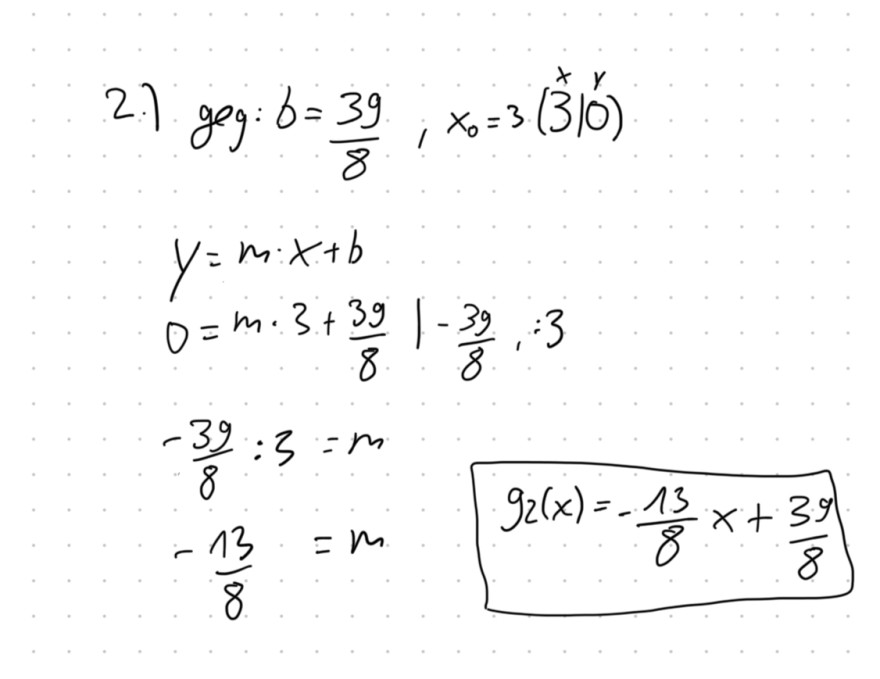 2.) geg: b = 39/8 , x₀ = 3 (3|0)
x y
y = m · x + b
0 = m · 3 + 39/8 | - 39/8 , :3
- 39/8 : 3 = m
- 13/8 = m
g₂(x) = - 13/8 x + 39/8